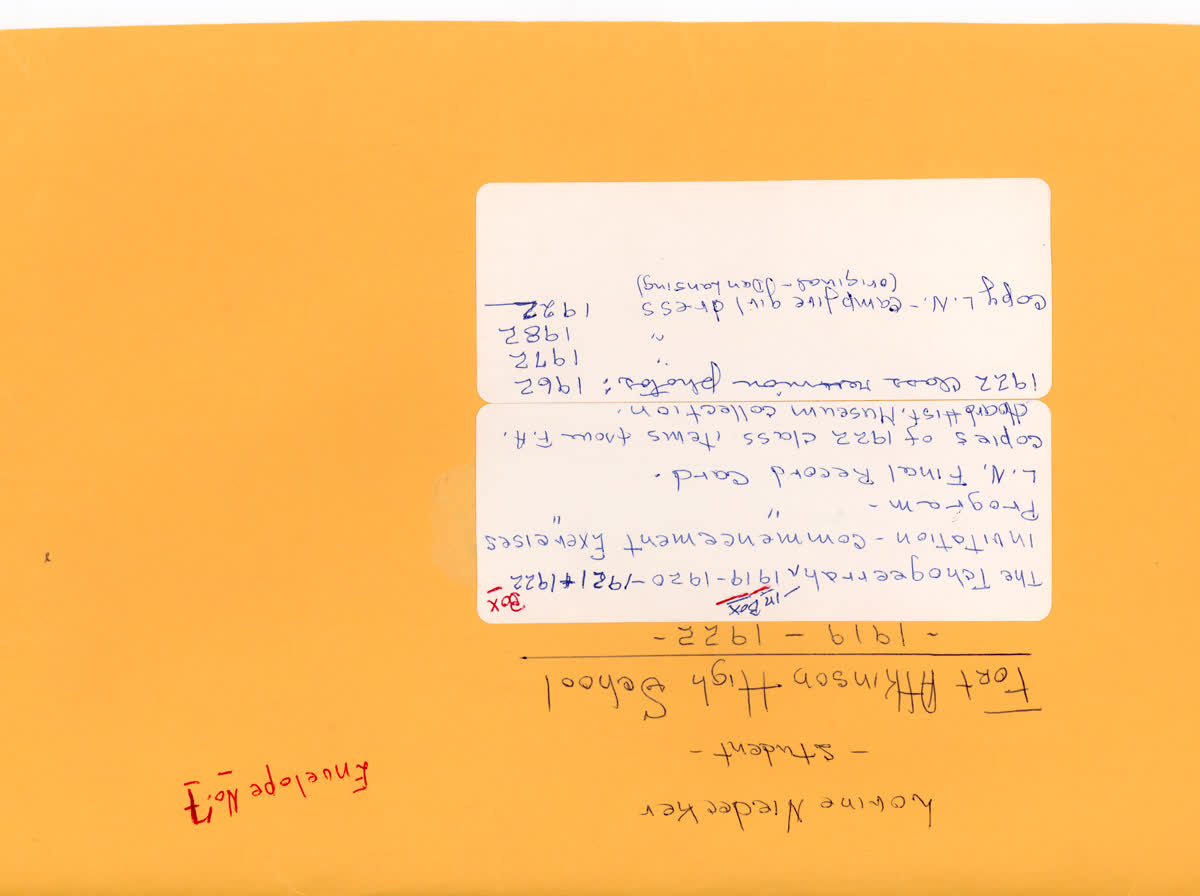 Lorine Niedecker
Envelope No. 7
- Student -
Fort Atkinson High School
- 1919 - 1922 -
in Box
Box
The Tchogeerrah, 1919-1920-1921+1922
Invitation - Commencement Exercises
Program - " "
L.N. Final Record Card.
Copies of 1922 class items from F.A.
Hoard Hist. Museum collection.
1922 Class reunion photos: 1962
" 1972
" 1982
Copy L.N. - Campfire girl dress 1922
(original - Dan Lansing)